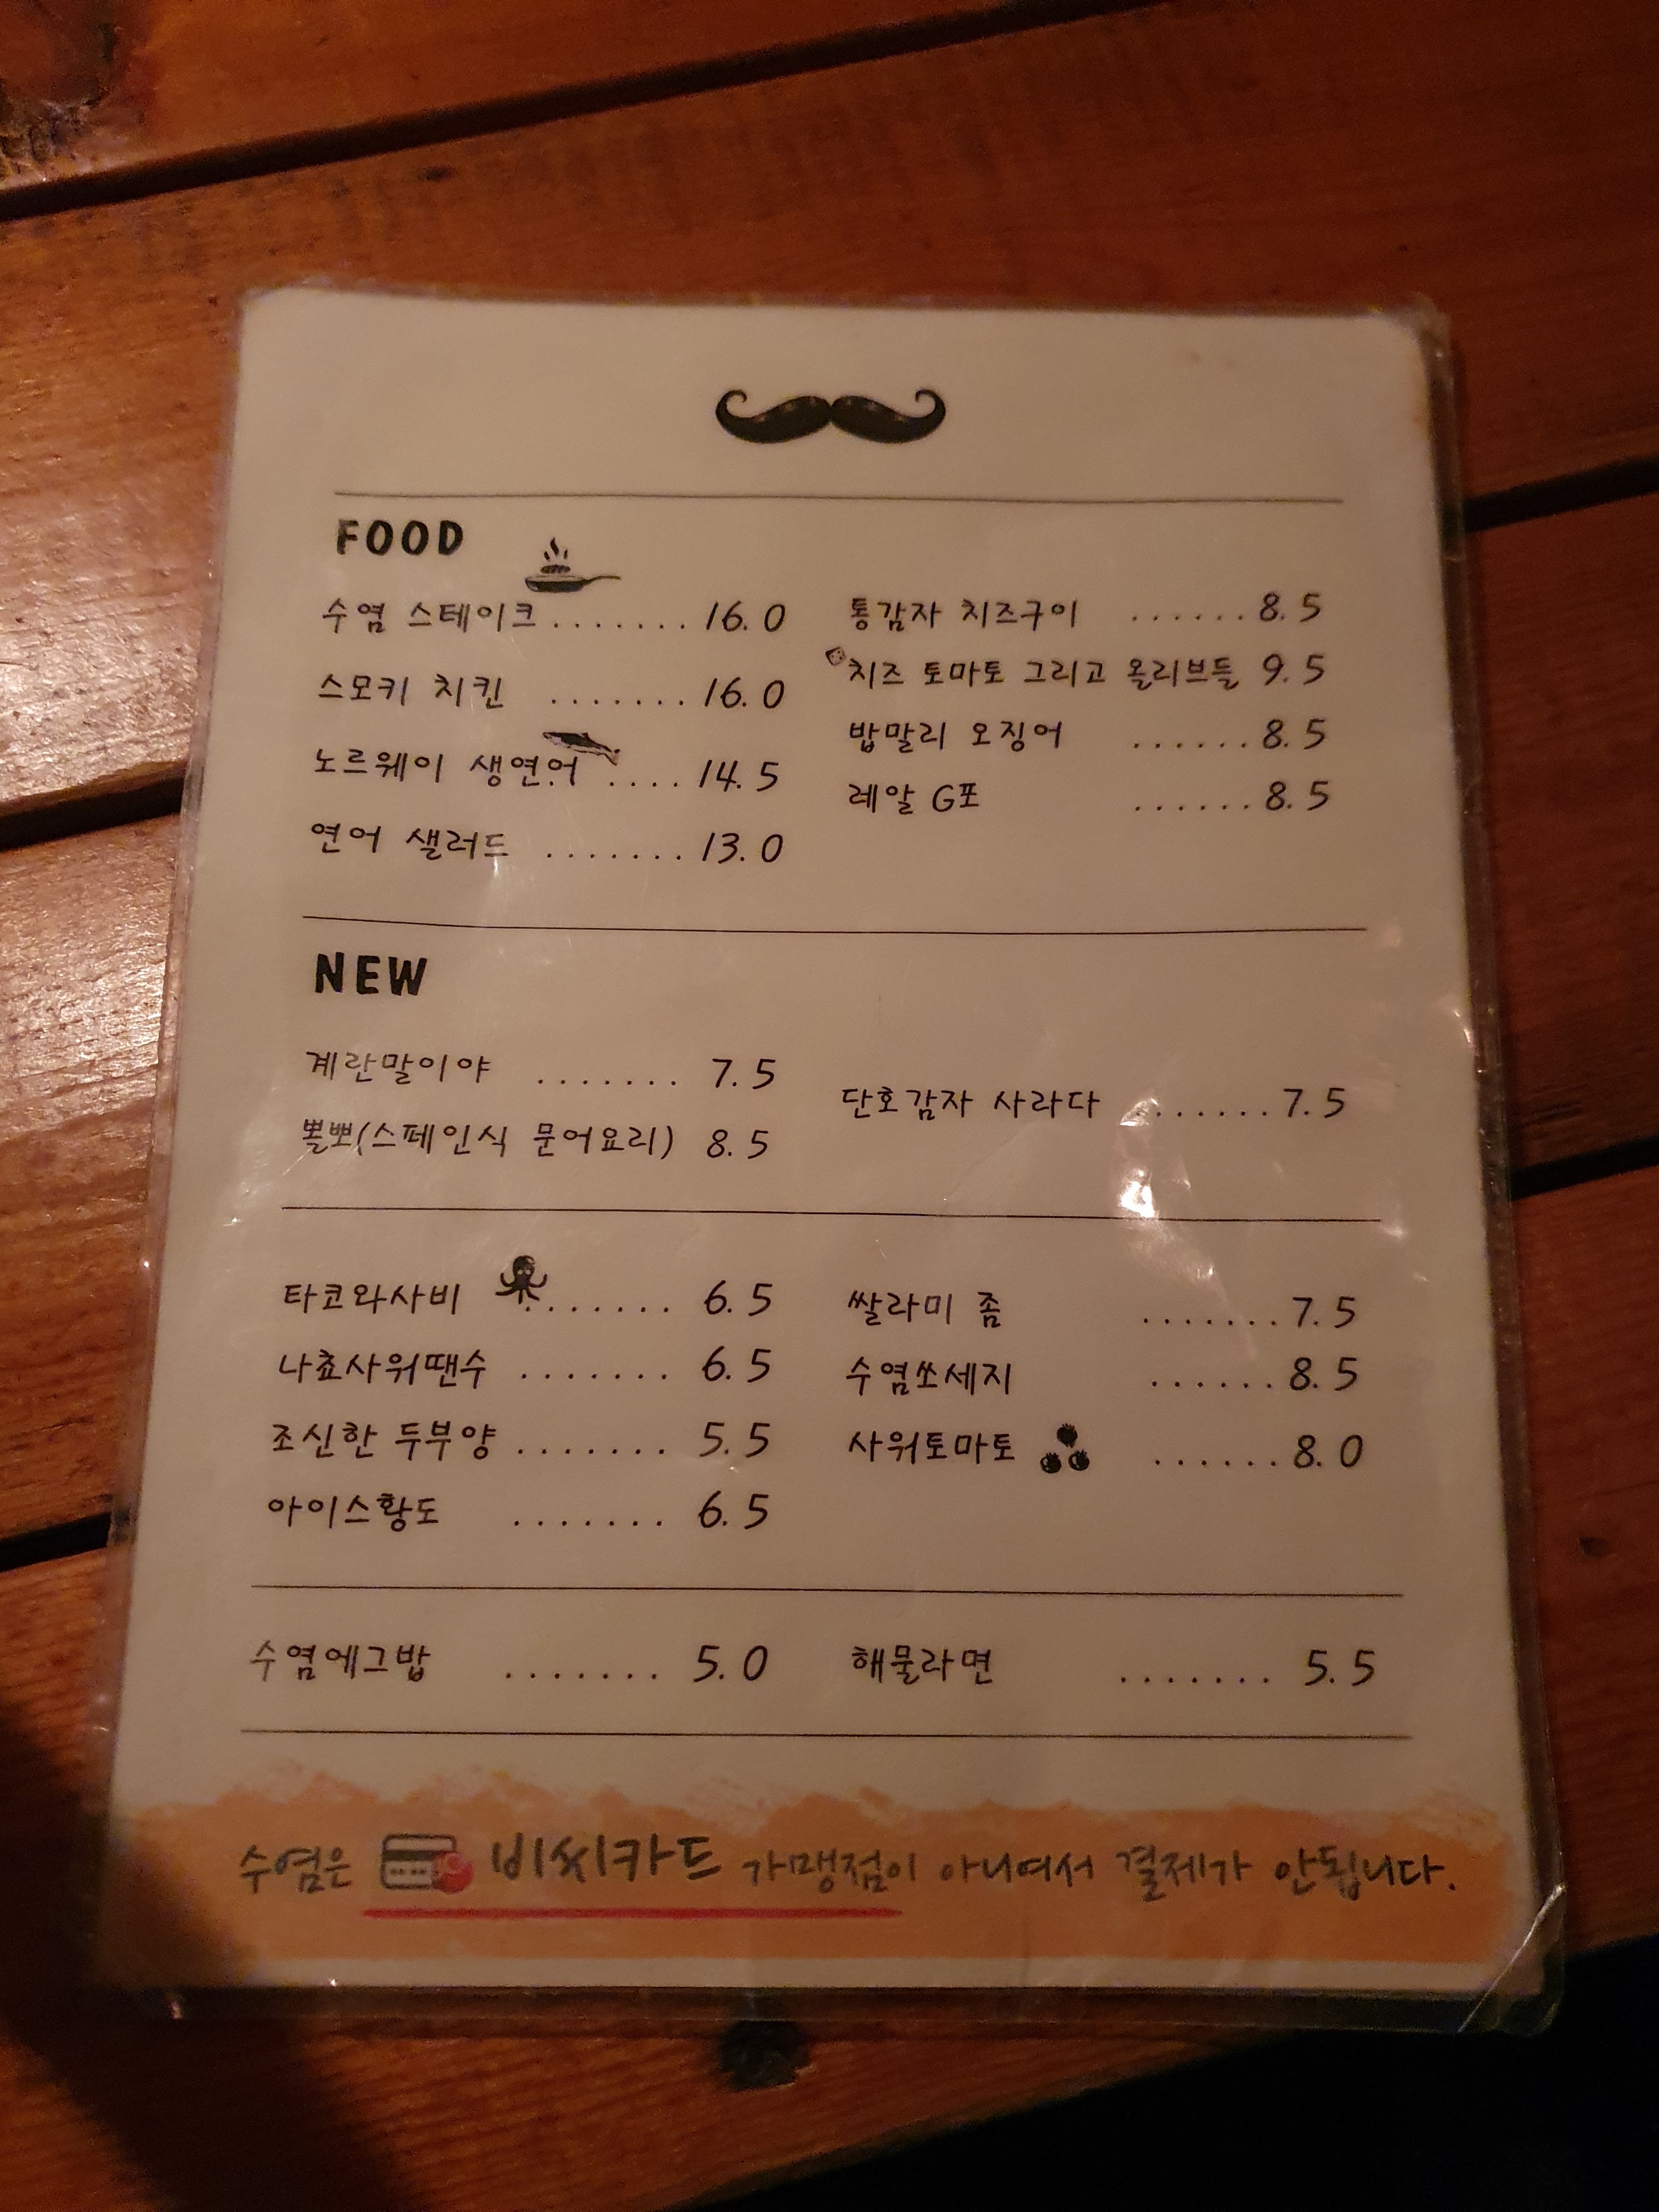 FOOD
수염 스테이크 ....... 16.0
스모키 치킨 ....... 16.0
노르웨이 생연어 .... 14.5
연어 샐러드 ....... 13.0
통감자 치즈구이 ...... 8.5
치즈 토마토 그리고 올리브들 9.5
밥말리 오징어 ...... 8.5
레알 G포 ...... 8.5
NEW
계란말이야 ....... 7.5
뽈뽀(스페인식 문어요리) 8.5
단호감자 사라다 ....... 7.5
타코와사비 ....... 6.5
나쵸사워땐수 ....... 6.5
조신한 두부양 ....... 5.5
아이스황도 ....... 6.5
쌀라미 좀 ....... 7.5
수염쏘세지 ...... 8.5
사워토마토 ...... 8.0
수염에그밥 ....... 5.0
해물라면 ....... 5.5
수염은 비씨카드 가맹점이 아니여서 결제가 안됩니다.